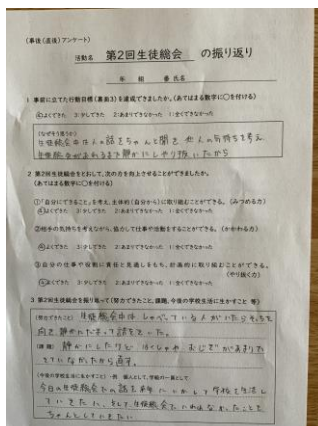 (事後(直後)アンケート)
活動名 第2回生徒総会 の振り返り
年 組 番 氏名
1 事前に立てた行動目標(裏面3)を達成できましたか。(あてはまる数字に○を付ける)
④よくできた 3:少しできた 2:あまりできなかった 1:全くできなかった
(なぜそう思うか)
生徒総会中は人の話をちゃんと聞き、他人の気持ちを考え、
生徒総会がおわるまで静かにしやり抜いたから
2 第2回生徒総会をとおして、次の力を向上させることができましたか。
(あてはまる数字に○を付ける)
①「自分にできること」を考え、主体的(自分から)に取り組むことができる。(みつめる力)
④よくできた 3:少しできた 2:あまりできなかった 1:全くできなかった
②相手の気持ちを考えながら、協力して仕事や活動をすることができる。(かかわる力)
④よくできた 3:少しできた 2:あまりできなかった 1:全くできなかった
③自分の仕事や役割に責任と見通しをもち、計画的に取り組むことができる。
(やり抜く力)
④よくできた 3:少しできた 2:あまりできなかった 1:全くできなかった
3 第2回生徒総会を振り返って(努力できたこと、課題、今後の学校生活に生かすこと 等)
(努力できたこと) 生徒総会中は しゃべっている人がいたらそっちを
向き、静かにだまって話をきいた。
(課題) 静かにしたけど はくしゅや、おじぎがあまりで
きていなかったから直す。
(今後の学校生活に生かすこと) -例 個人として、学級の一員として
今日の生徒総会での話を来年にいかして学校で生活し
ていきたい、そして生徒総会で、いわれなかったことを
ちゃんとしていきたい